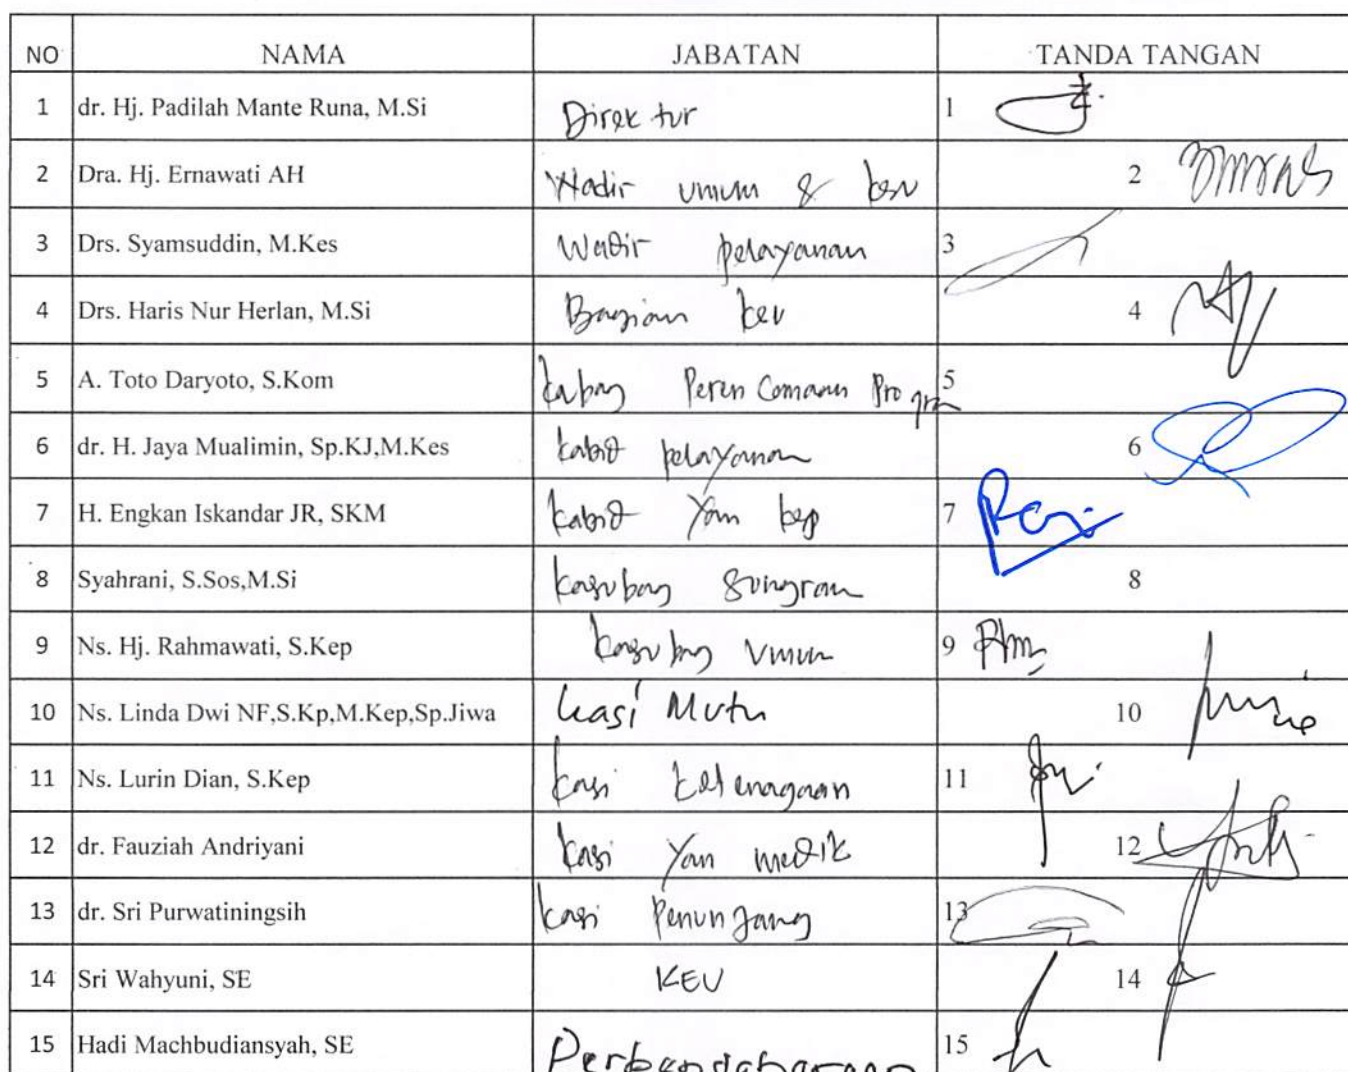 NO NAMA JABATAN TANDA TANGAN
1 dr. Hj. Padilah Mante Runa, M.Si Direktur 1
2 Dra. Hj. Ernawati AH Wadir umum & keu 2
3 Drs. Syamsuddin, M.Kes Wadir pelayanan 3
4 Drs. Haris Nur Herlan, M.Si Bagian keu 4
5 A. Toto Daryoto, S.Kom Kabag Perencanaan Program 5
6 dr. H. Jaya Mualimin, Sp.KJ,M.Kes Kabid pelayanan 6
7 H. Engkan Iskandar JR, SKM Kabid Yan kep 7
8 Syahrani, S.Sos,M.Si Kasubag Sungram 8
9 Ns. Hj. Rahmawati, S.Kep Kasubag Umum 9
10 Ns. Linda Dwi NF,S.Kp,M.Kep,Sp.Jiwa Kasi Mutu 10
11 Ns. Lurin Dian, S.Kep Kasi Ketenagaan 11
12 dr. Fauziah Andriyani Kasi Yan medik 12
13 dr. Sri Purwatiningsih Kasi Penunjang 13
14 Sri Wahyuni, SE KEU 14
15 Hadi Machbudiansyah, SE Perbendaharaan 15